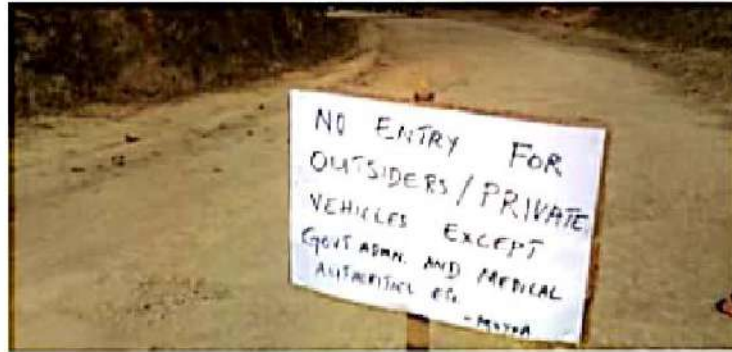 NO ENTRY FOR
OUTSIDERS / PRIVATE
VEHICLES EXCEPT
GOVT ADMN. AND MEDICAL
AUTHORITIES ETC